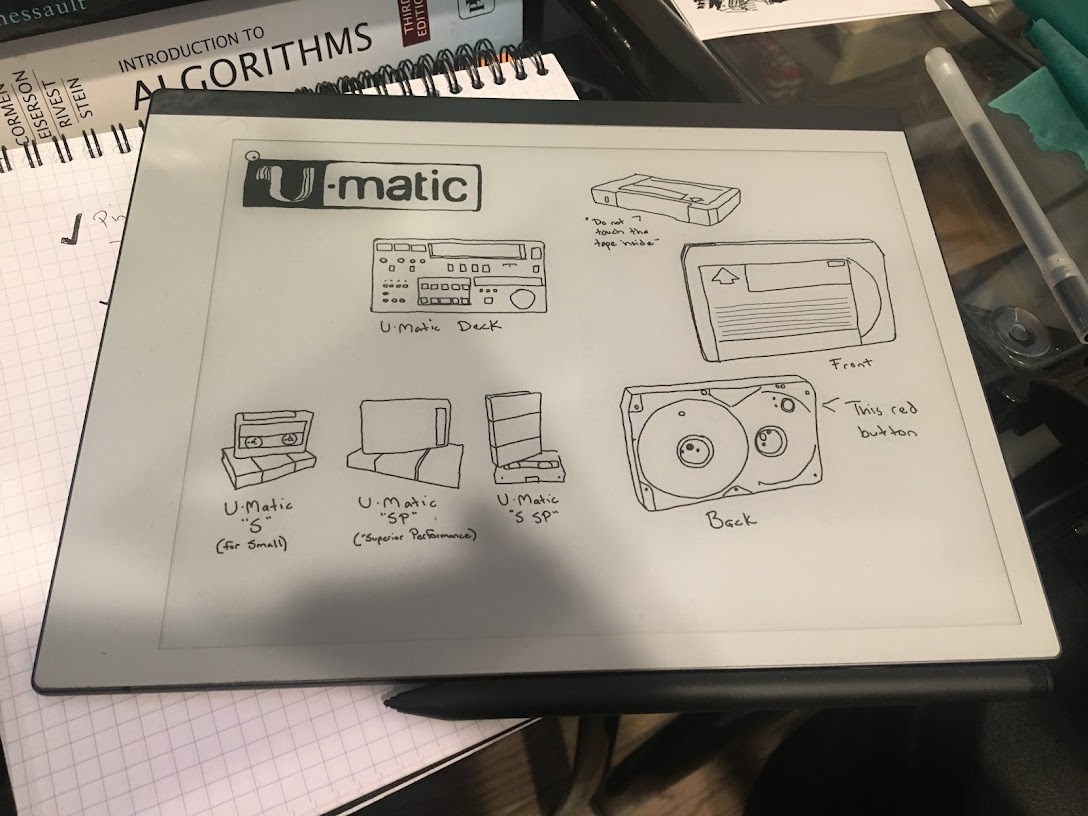 nessault
INTRODUCTION TO
ALGORITHMS
THIRD
EDITION
CORMEN
LEISERSON
RIVEST
STEIN
U-matic
"Do not
touch the
tape inside"
U-Matic Deck
Front
This red
button
Back
U-Matic
"S"
(for Small)
U-Matic
"SP"
("Superior Performance)
U-Matic
"S SP"